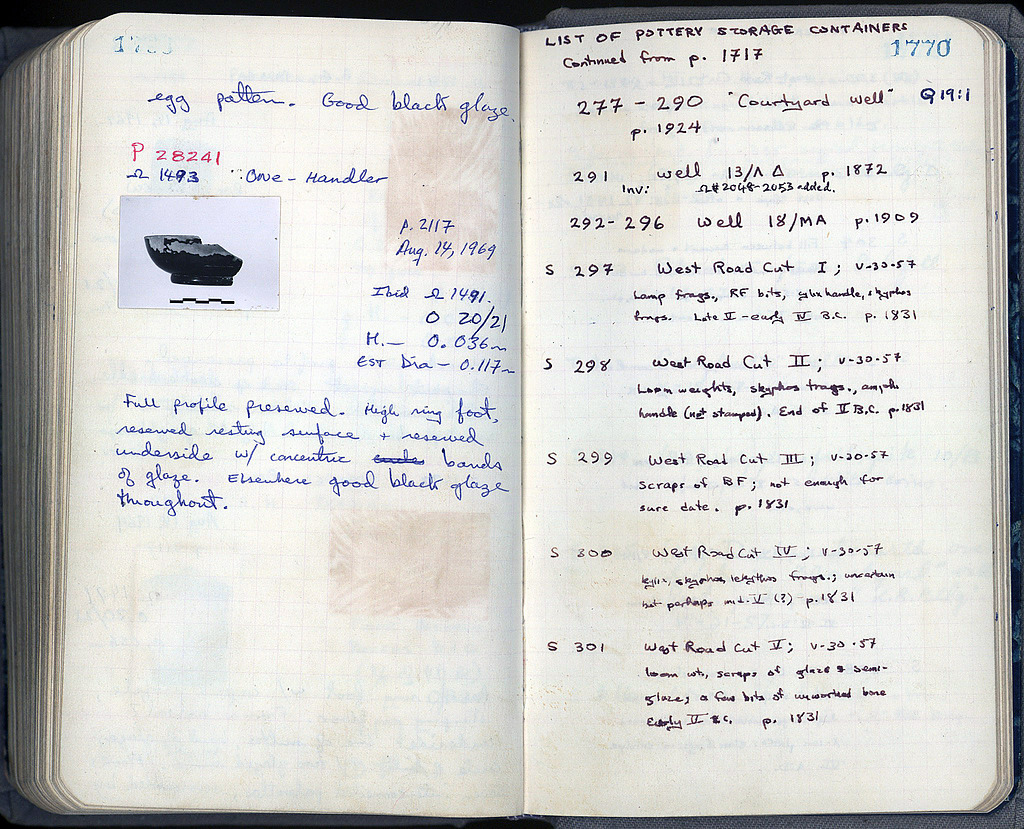 egg pattern. Good black glaze.
P 28241
Ω 1493 "One-Handler
p. 2117
Aug. 14, 1969
Ibid Ω 1491.
O 20/21
H.— 0.036m
EST Dia — 0.117m
Full profile preserved. High ring foot,
reserved resting surface + reserved
underside w/ concentric bands
of glaze. Elsewhere good black glaze
throughout.
LIST OF POTTERY STORAGE CONTAINERS
1770
Continued from p. 1717
277 - 290 "Courtyard Well" Q 19:1
p. 1924
291 well 13/Λ Δ p. 1872
Inv: Ω# 2048-2053 added.
292-296 Well 18/MA p. 1909
S 297 West Road Cut I; V-30-57
Lamp frags., RF bits, kylix handle, skyphos
frags. Late V - early IV B.C. p. 1831
S 298 West Road Cut II; V-30-57
Loom weights, skyphos frags., amph
handle (not stamped). End of V B.C. p. 1831
S 299 West Road Cut III; V-30-57
scraps of BF; not enough for
sure date. p. 1831
S 300 West Road Cut IV; V-30-57
kylix, skyphos, lekythos frags.; uncertain
but perhaps mid. V (?) - p. 1831
S 301 West Road Cut V; V-30-57
loom wts, scraps of glaze & semi-
glaze; a few bits of unworked bone
Early B.C. p. 1831